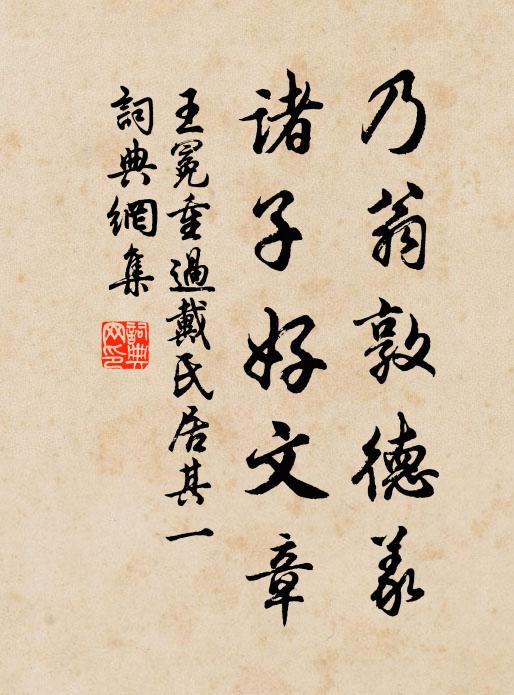 乃翁敦德義
諸子好文章
王冕重過戴氏居其一
詞典網集
詞典網印